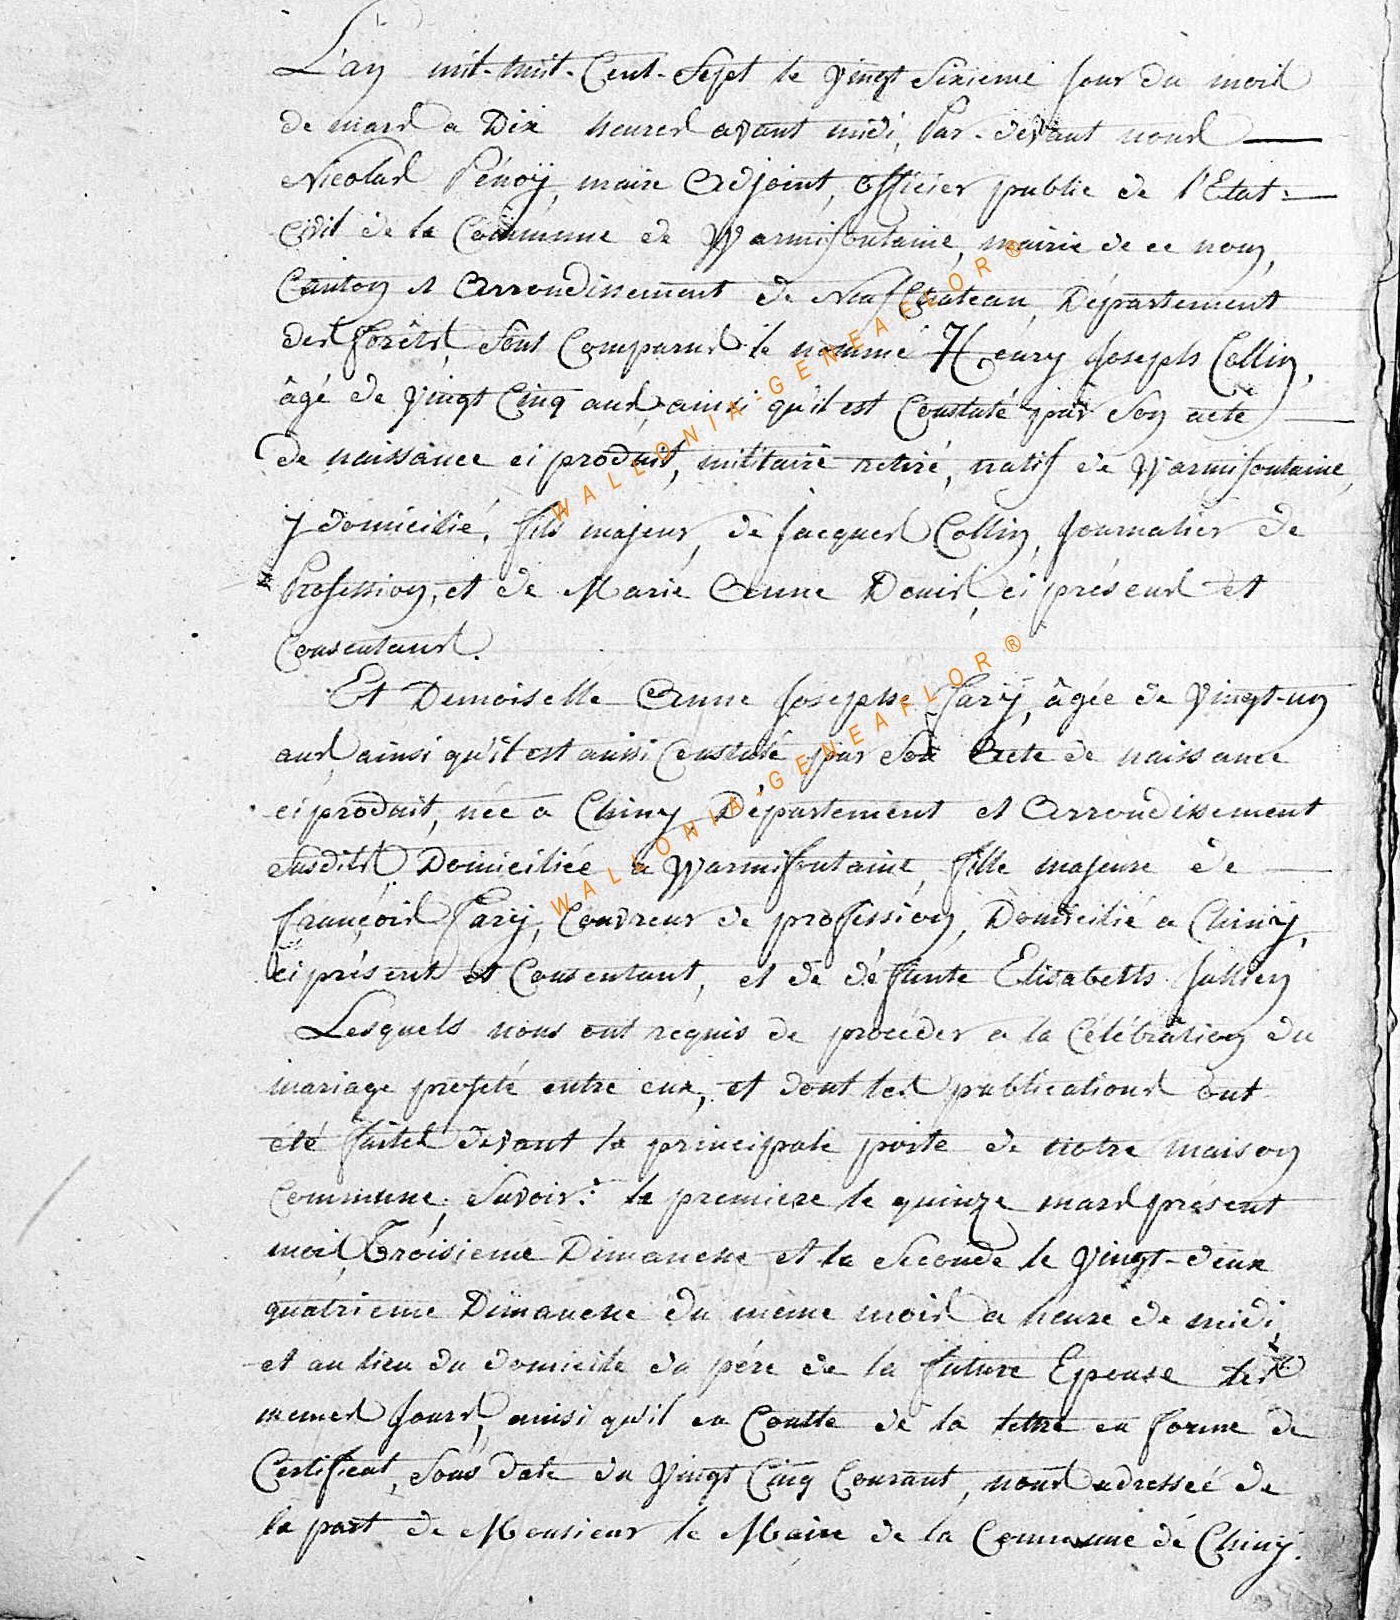 L'an mil-huit-Cent-Sept le vingt Sixieme jour du mois
de mars a Dix heures avant midi, Par-devant nous
Nicolas Pénoÿ, maire Adjoint, officier public de l'Etat-
Civil de la Commune de Warmifontaine, mairie de ce nom,
Canton et Arrondissement de Neufchateau, Département
des forêts, Sont Comparus le nommé Henry Joseph Collin,
âgé de vingt Cinq ans, ainsi qu'il est Constaté par Son acte
de naissance ci produit, militaire retiré, natif de Warmifontaine,
y domicilié, fils majeur, de Jacques Collin, Journalier de
Profession, et de Marie Anne Denis, ci présens et
Consentans.
Et Demoiselle Anne Josephe Farÿ, âgée de Vingt-un
ans, ainsi qu'il est aussi Constaté par Son Acte de naissance
ci produit, née a Chiny Département et Arrondissement
susdits Domiciliée a Warmifontaine, fille majeure de
françois Farÿ, Couvreur de profession, Domicilié a Chinÿ,
ci présent et Consentant, et de défunte Elisabeth Jullien
Lesquels nous ont requis de procéder a la Célébration du
mariage projeté entre eux, et dont les publications ont
été faites devant la principale porte de notre maison
Commune, Savoir: la premiere le quinze mars présent
mois, Troisieme Dimanche et la Seconde le Vingt-deux
quatrieme Dimanche du même mois a heure de midi,
et au lieu du domicile du pére de la future Epouse les
memes Jours, ainsi qu'il en Conste de la lettre en forme de
Certificat, Sous date du Vingt Cinq Courant, nous adressée de
la part de Monsieur le Maire de la Commune de Chinÿ.
WALLONIA-GENEAFLOR®
WALLONIA-GENEAFLOR®